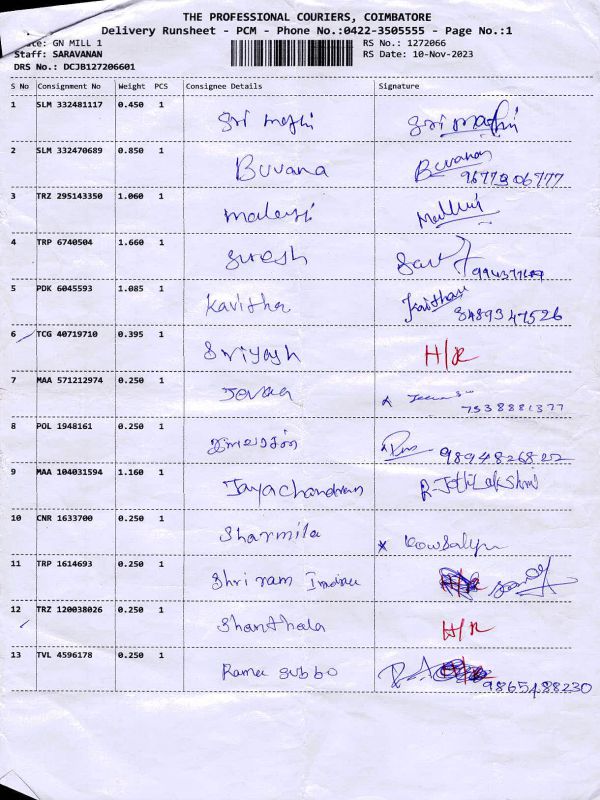 THE PROFESSIONAL COURIERS, COIMBATORE
Delivery Runsheet - PCM - Phone No.:0422-3505555 - Page No.:1
GN MILL 1 RS No.: 1272066
Staff: SARAVANAN RS Date: 10-Nov-2023
DRS No.: DCJB127206601
S No Consignment No Weight PCS Consignee Details Signature
1 SLM 332481117 0.450 1 Sri
2 SLM 332470689 0.850 1 Buvana Buvana
9677306777
3 TRZ 295143350 1.060 1
4 TRP 6740504 1.660 1 Suresh
5 PDK 6045593 1.085 1 Kavitha
8489347526
6 TCG 40719710 0.395 1 Sriyash H/R
7 MAA 571212974 0.250 1
7538881377
8 POL 1948161 0.250 1
9894826822
9 MAA 104031594 1.160 1 Jayachandran R. Jothi Lakshmi
10 CNR 1633700 0.250 1 Sharmila Kowsalya
11 TRP 1614693 0.250 1 Shri ram
12 TRZ 120038026 0.250 1 Shanthala H/R
13 TVL 4596178 0.250 1 Rama Subbo
9865488230